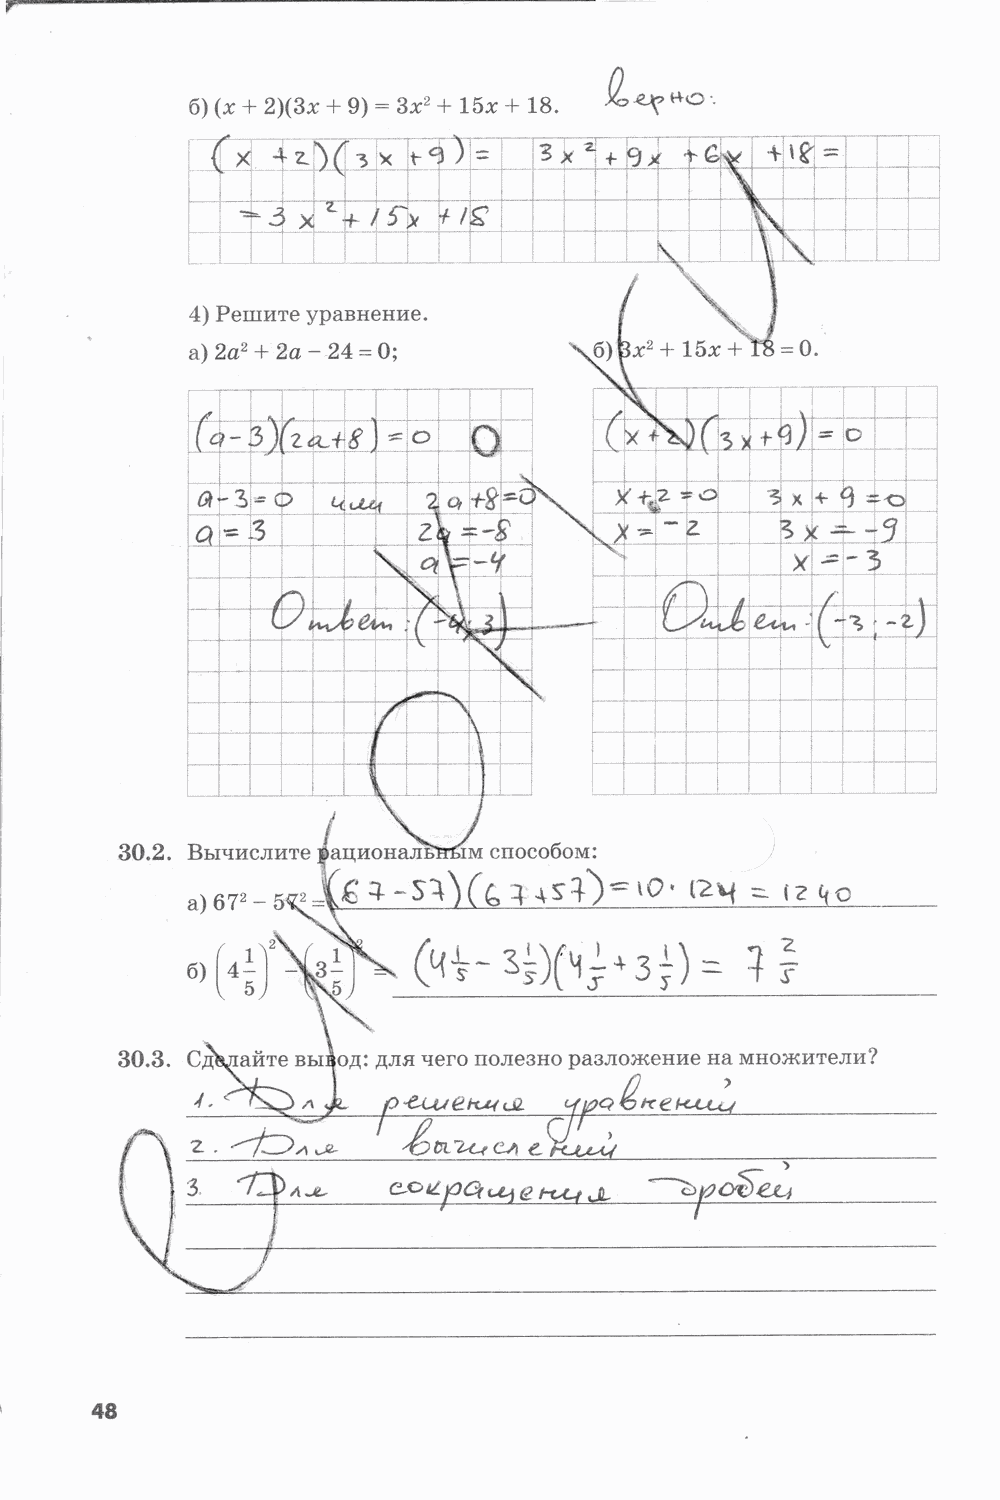 б) (x + 2)(3x + 9) = 3x² + 15x + 18. верно:
(x + 2)(3x + 9) = 3x² + 9x + 6x + 18 =
= 3x² + 15x + 18
4) Решите уравнение.
а) 2a² + 2a − 24 = 0; б) 3x² + 15x + 18 = 0.
(a − 3)(2a + 8) = 0 (x + 2)(3x + 9) = 0
a − 3 = 0 или 2a + 8 = 0 x + 2 = 0 3x + 9 = 0
a = 3 2a = −8 x = −2 3x = −9
a = −4 x = −3
Ответ: (−4; 3) Ответ: (−3; −2)
30.2. Вычислите рациональным способом:
а) 67² − 57² = (67 − 57)(67 + 57) = 10 · 124 = 1240
б) (4 1/5)² − (3 1/5)² = (4 1/5 − 3 1/5)(4 1/5 + 3 1/5) = 7 2/5
30.3. Сделайте вывод: для чего полезно разложение на множители?
1. Для решения уравнений
2. Для вычислений
3. Для сокращения дробей
48